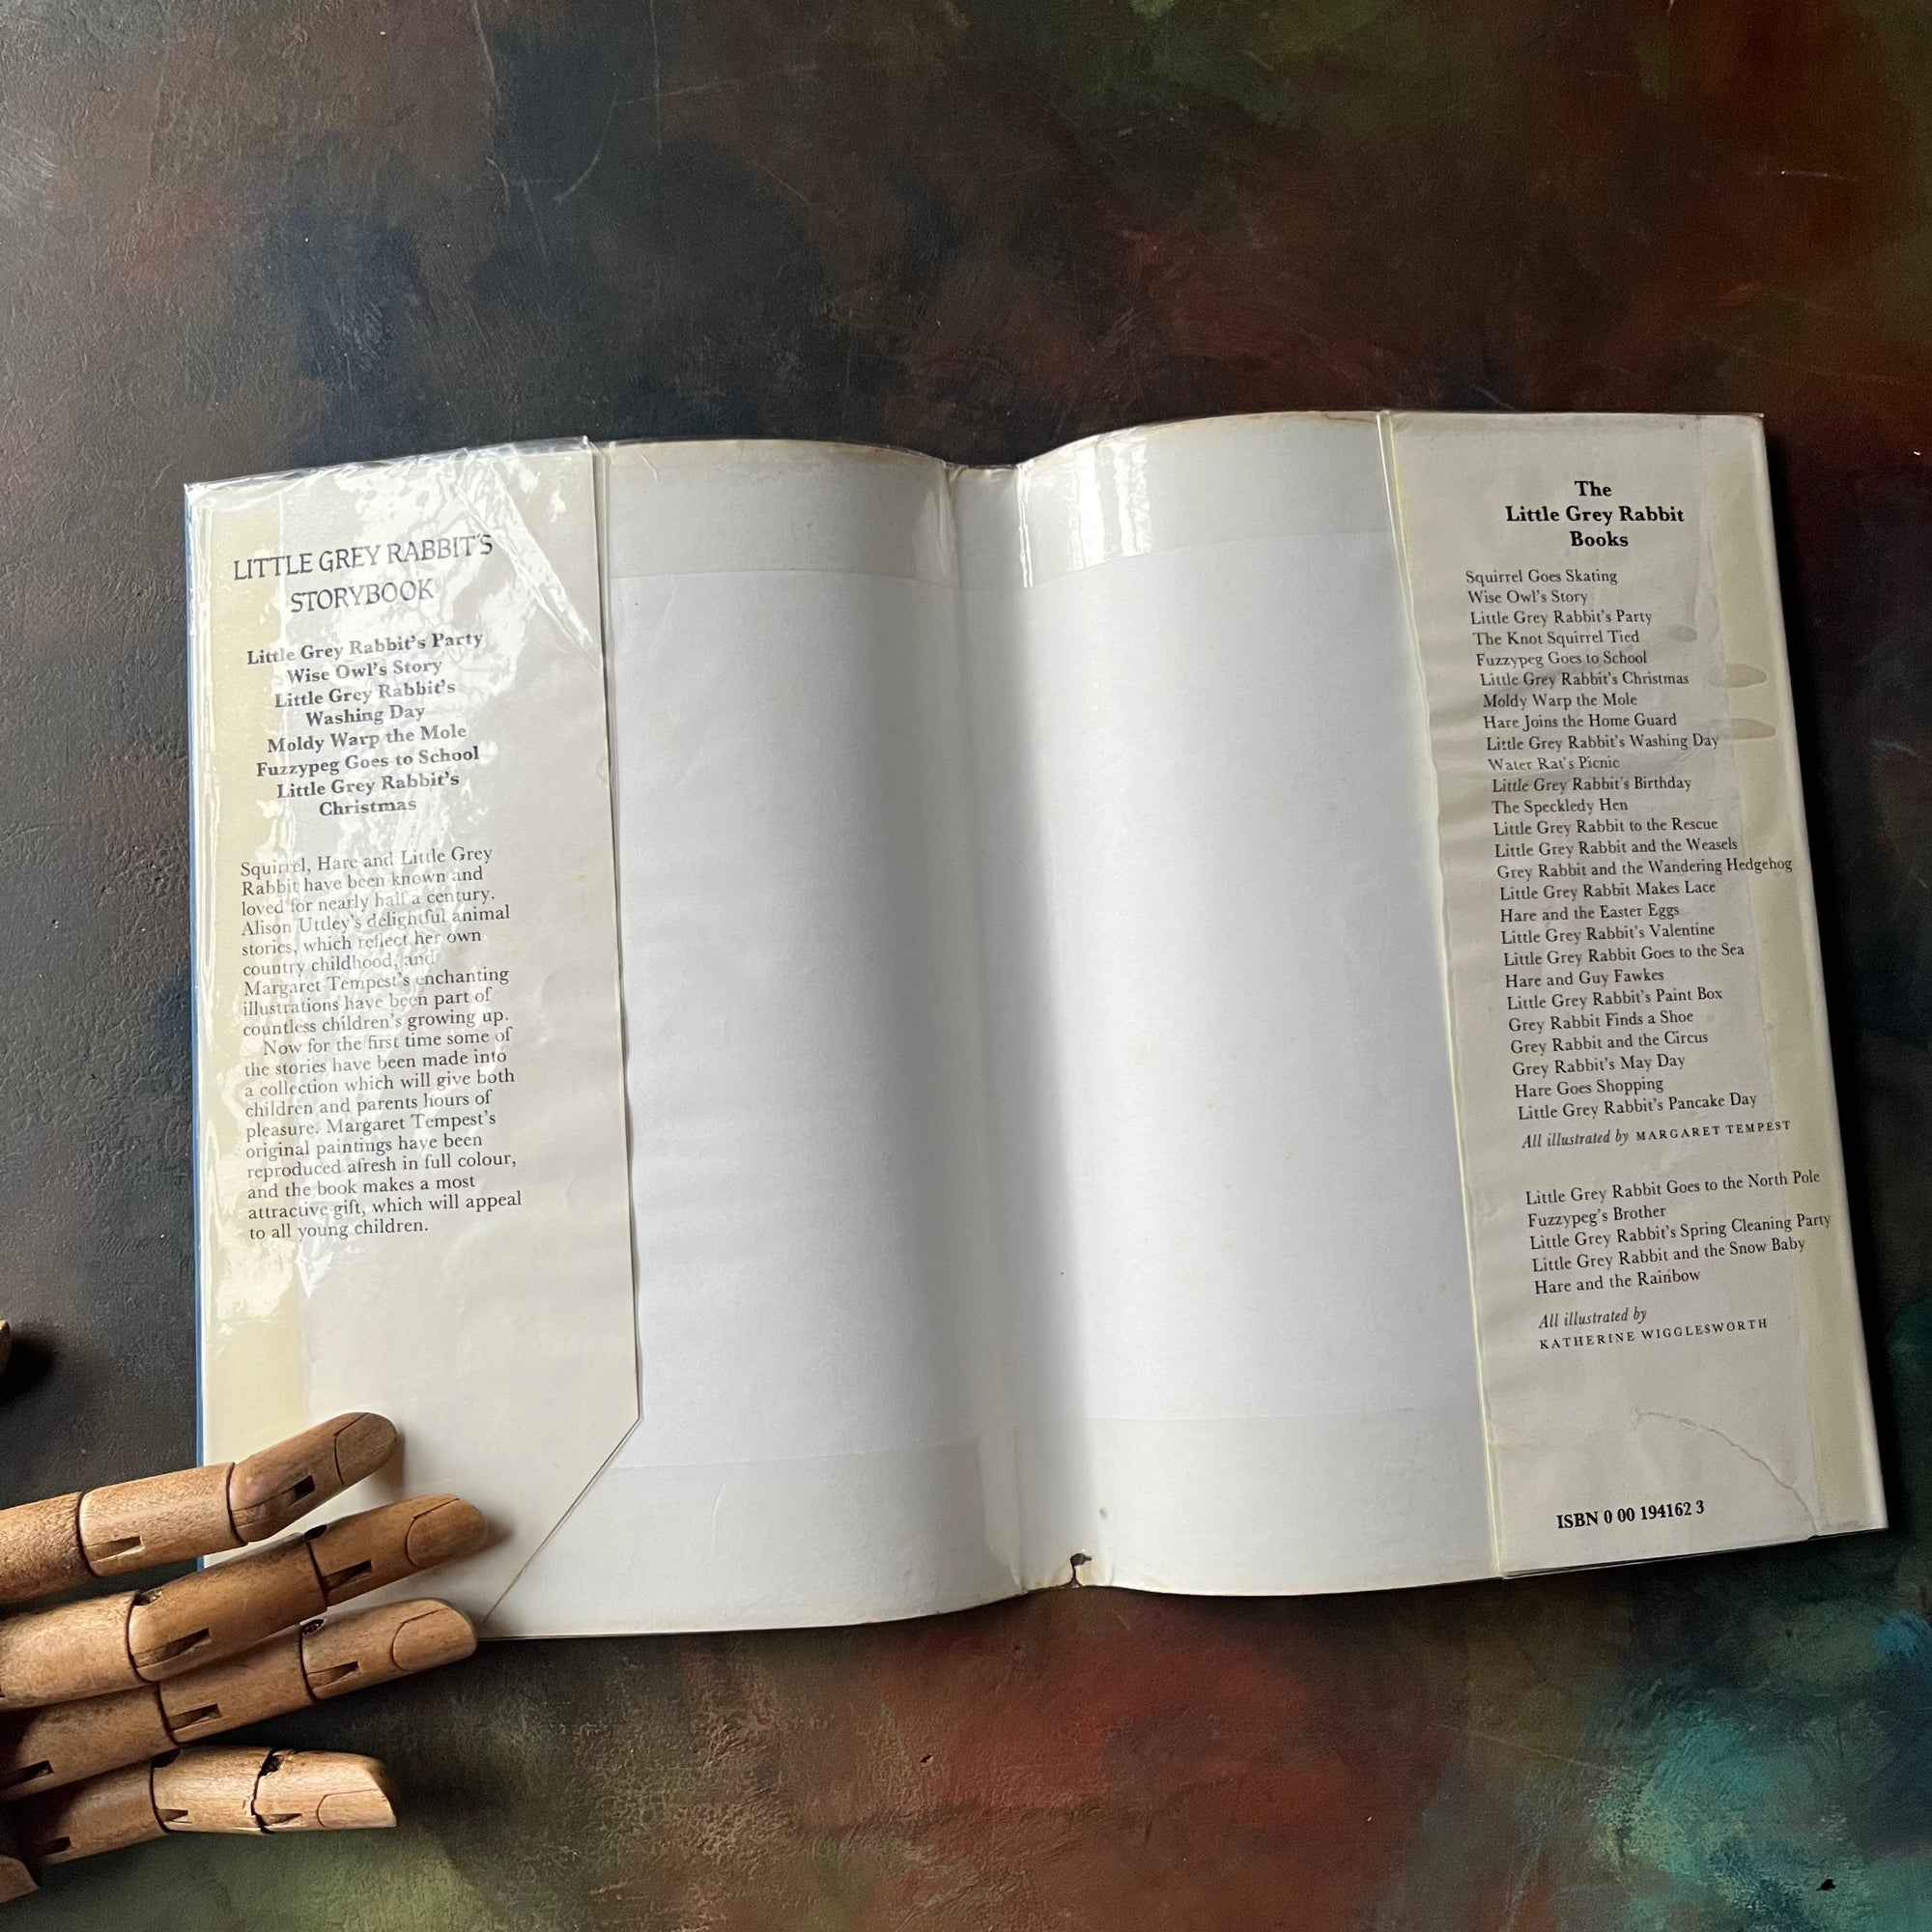 LITTLE GREY RABBIT'S
STORYBOOK
Little Grey Rabbit's Party
Wise Owl's Story
Little Grey Rabbit's
Washing Day
Moldy Warp the Mole
Fuzzypeg Goes to School
Little Grey Rabbit's
Christmas
Squirrel, Hare and Little Grey
Rabbit have been known and
loved for nearly half a century.
Alison Uttley's delightful animal
stories, which reflect her own
country childhood, and
Margaret Tempest's enchanting
illustrations have been part of
countless children's growing up.
Now for the first time some of
the stories have been made into
a collection which will give both
children and parents hours of
pleasure. Margaret Tempest's
original paintings have been
reproduced afresh in full colour,
and the book makes a most
attractive gift, which will appeal
to all young children.
The
Little Grey Rabbit
Books
Squirrel Goes Skating
Wise Owl's Story
Little Grey Rabbit's Party
The Knot Squirrel Tied
Fuzzypeg Goes to School
Little Grey Rabbit's Christmas
Moldy Warp the Mole
Hare Joins the Home Guard
Little Grey Rabbit's Washing Day
Water Rat's Picnic
Little Grey Rabbit's Birthday
The Speckledy Hen
Little Grey Rabbit to the Rescue
Little Grey Rabbit and the Weasels
Grey Rabbit and the Wandering Hedgehog
Little Grey Rabbit Makes Lace
Hare and the Easter Eggs
Little Grey Rabbit's Valentine
Little Grey Rabbit Goes to the Sea
Hare and Guy Fawkes
Little Grey Rabbit's Paint Box
Grey Rabbit Finds a Shoe
Grey Rabbit and the Circus
Grey Rabbit's May Day
Hare Goes Shopping
Little Grey Rabbit's Pancake Day
All illustrated by MARGARET TEMPEST
Little Grey Rabbit Goes to the North Pole
Fuzzypeg's Brother
Little Grey Rabbit's Spring Cleaning Party
Little Grey Rabbit and the Snow Baby
Hare and the Rainbow
All illustrated by
KATHERINE WIGGLESWORTH
ISBN 0 00 194162 3